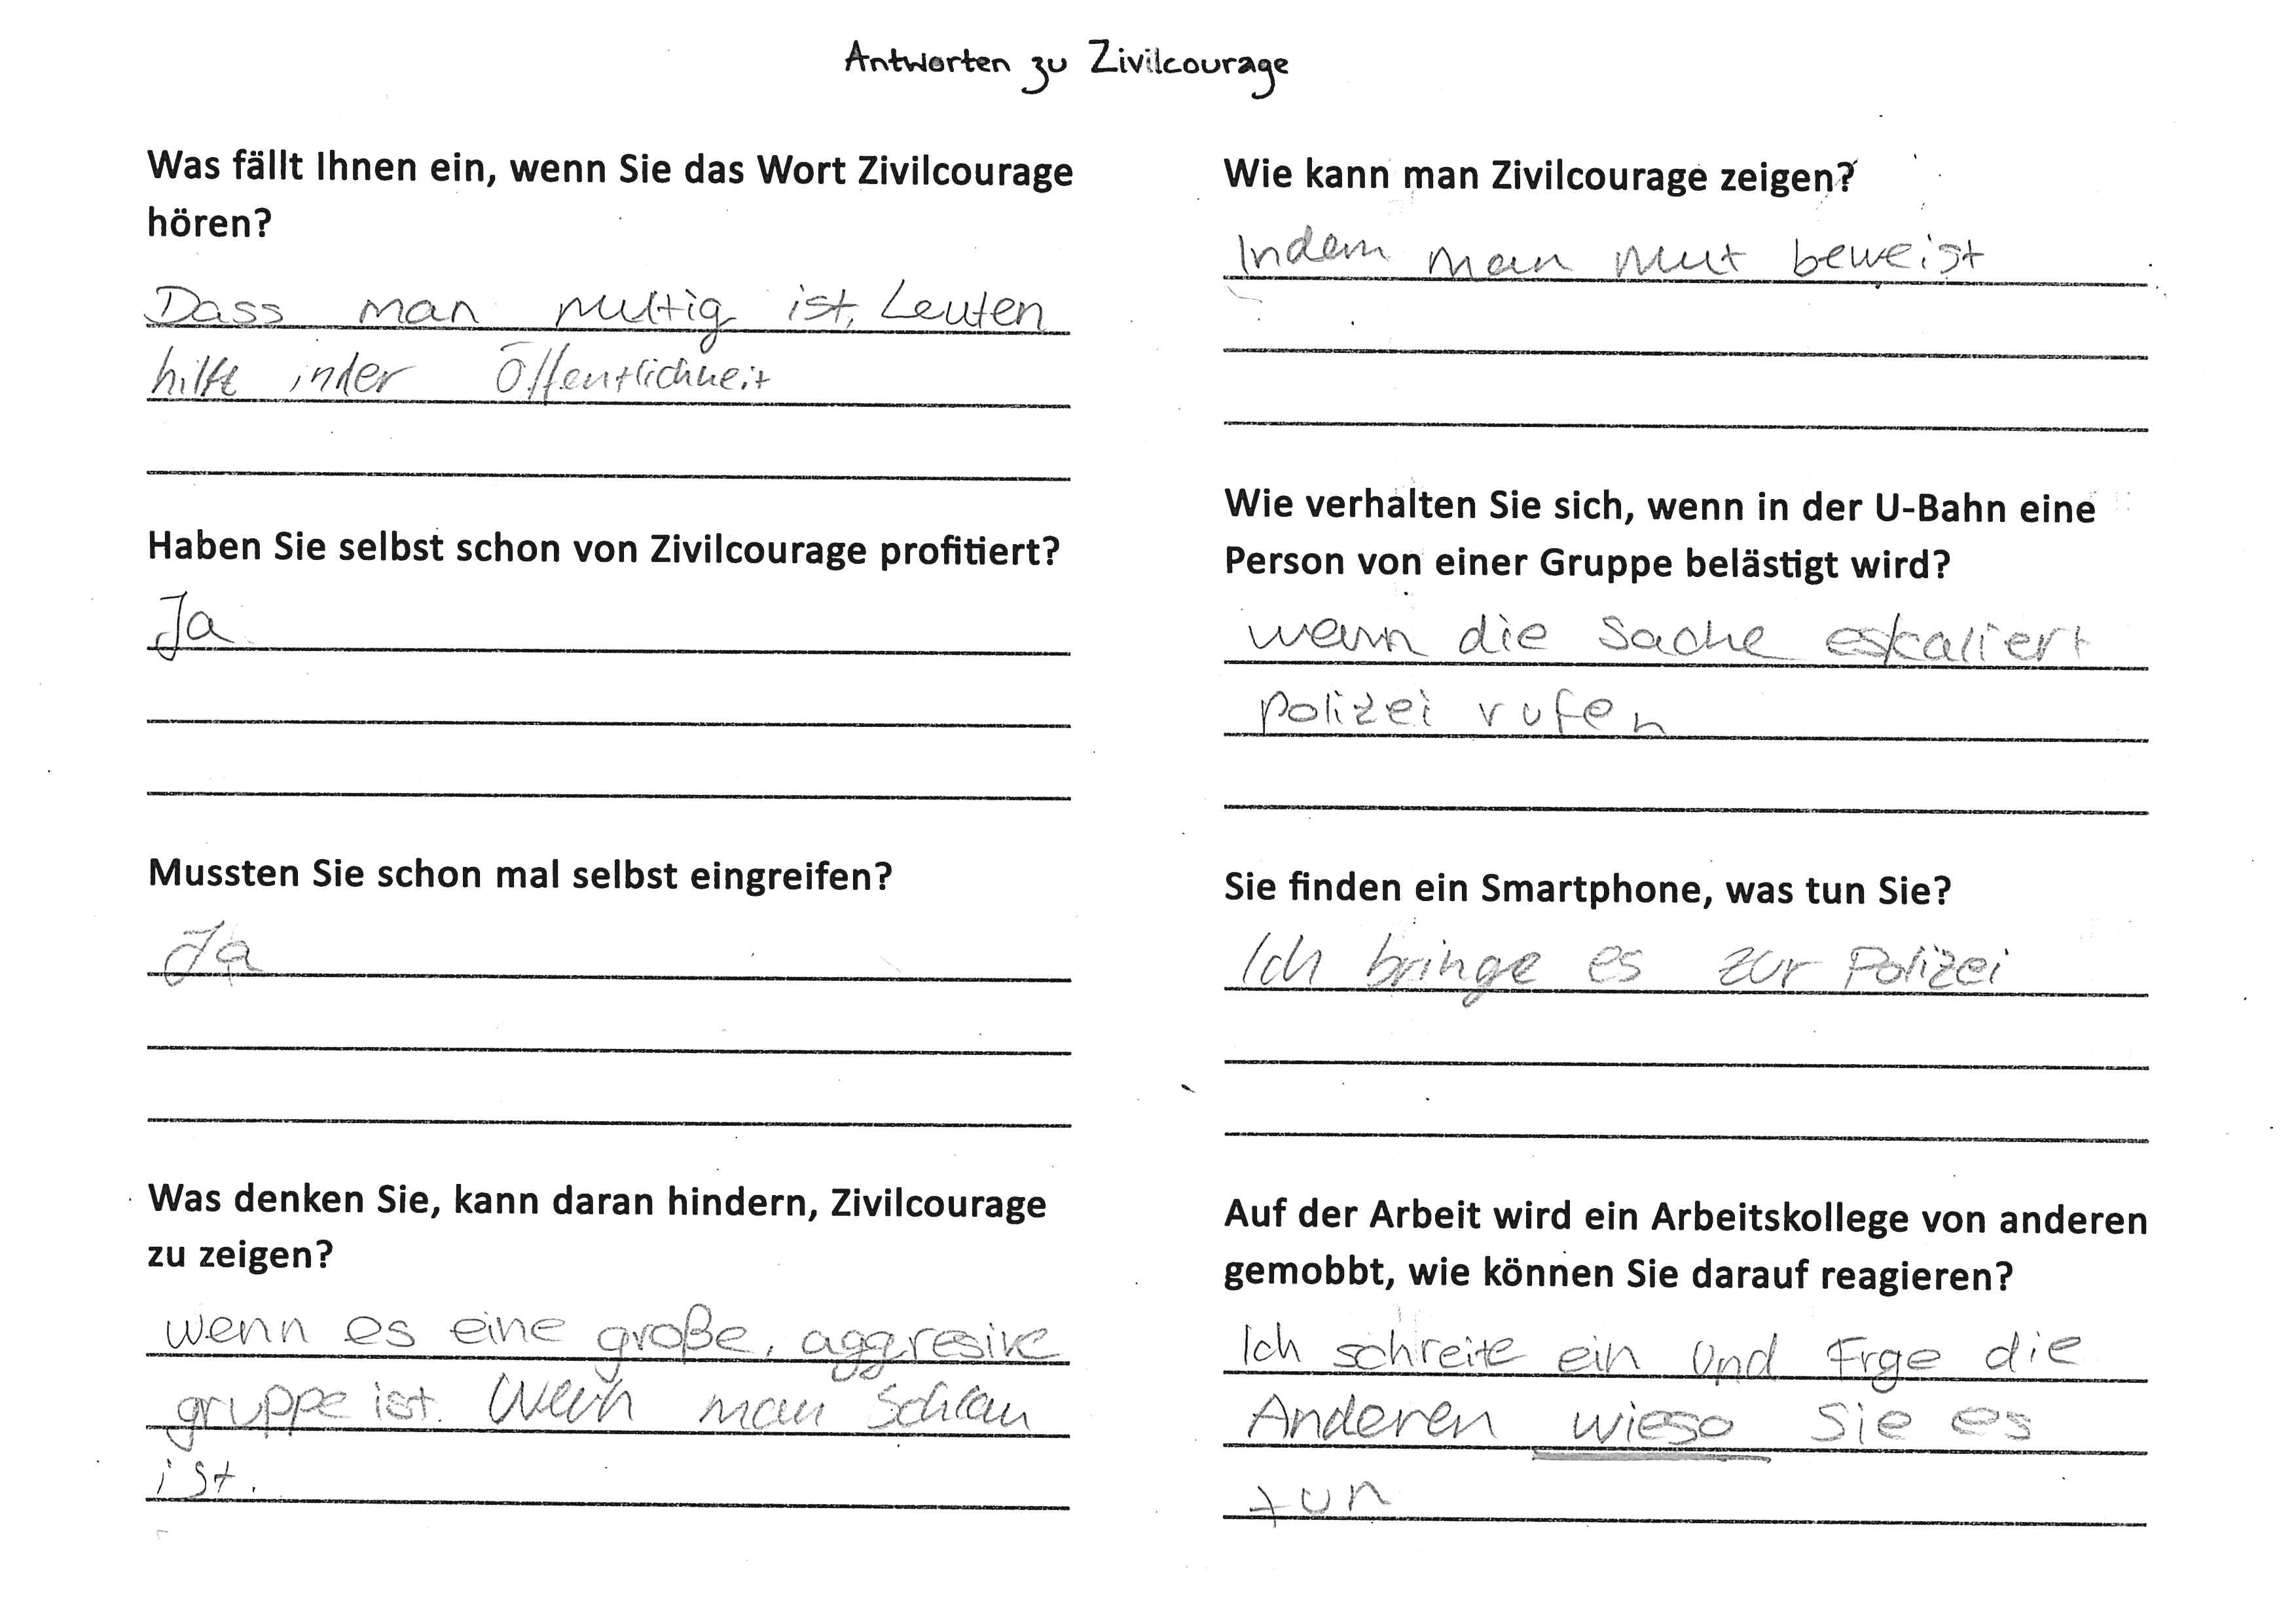 Antworten zu Zivilcourage
Was fällt Ihnen ein, wenn Sie das Wort Zivilcourage
hören?
Dass man mutig ist, Leuten
hilft in der Öffentlichkeit
Haben Sie selbst schon von Zivilcourage profitiert?
Ja
Mussten Sie schon mal selbst eingreifen?
Ja
Was denken Sie, kann daran hindern, Zivilcourage
zu zeigen?
wenn es eine große, aggresive
gruppe ist. Wenn man schlau
ist.
Wie kann man Zivilcourage zeigen?
Indem man Mut beweist
Wie verhalten Sie sich, wenn in der U-Bahn eine
Person von einer Gruppe belästigt wird?
wenn die Sache eskaliert
polizei rufen
Sie finden ein Smartphone, was tun Sie?
Ich bringe es zur Polizei
Auf der Arbeit wird ein Arbeitskollege von anderen
gemobbt, wie können Sie darauf reagieren?
Ich schreite ein und Frge die
Anderen wieso Sie es
tun